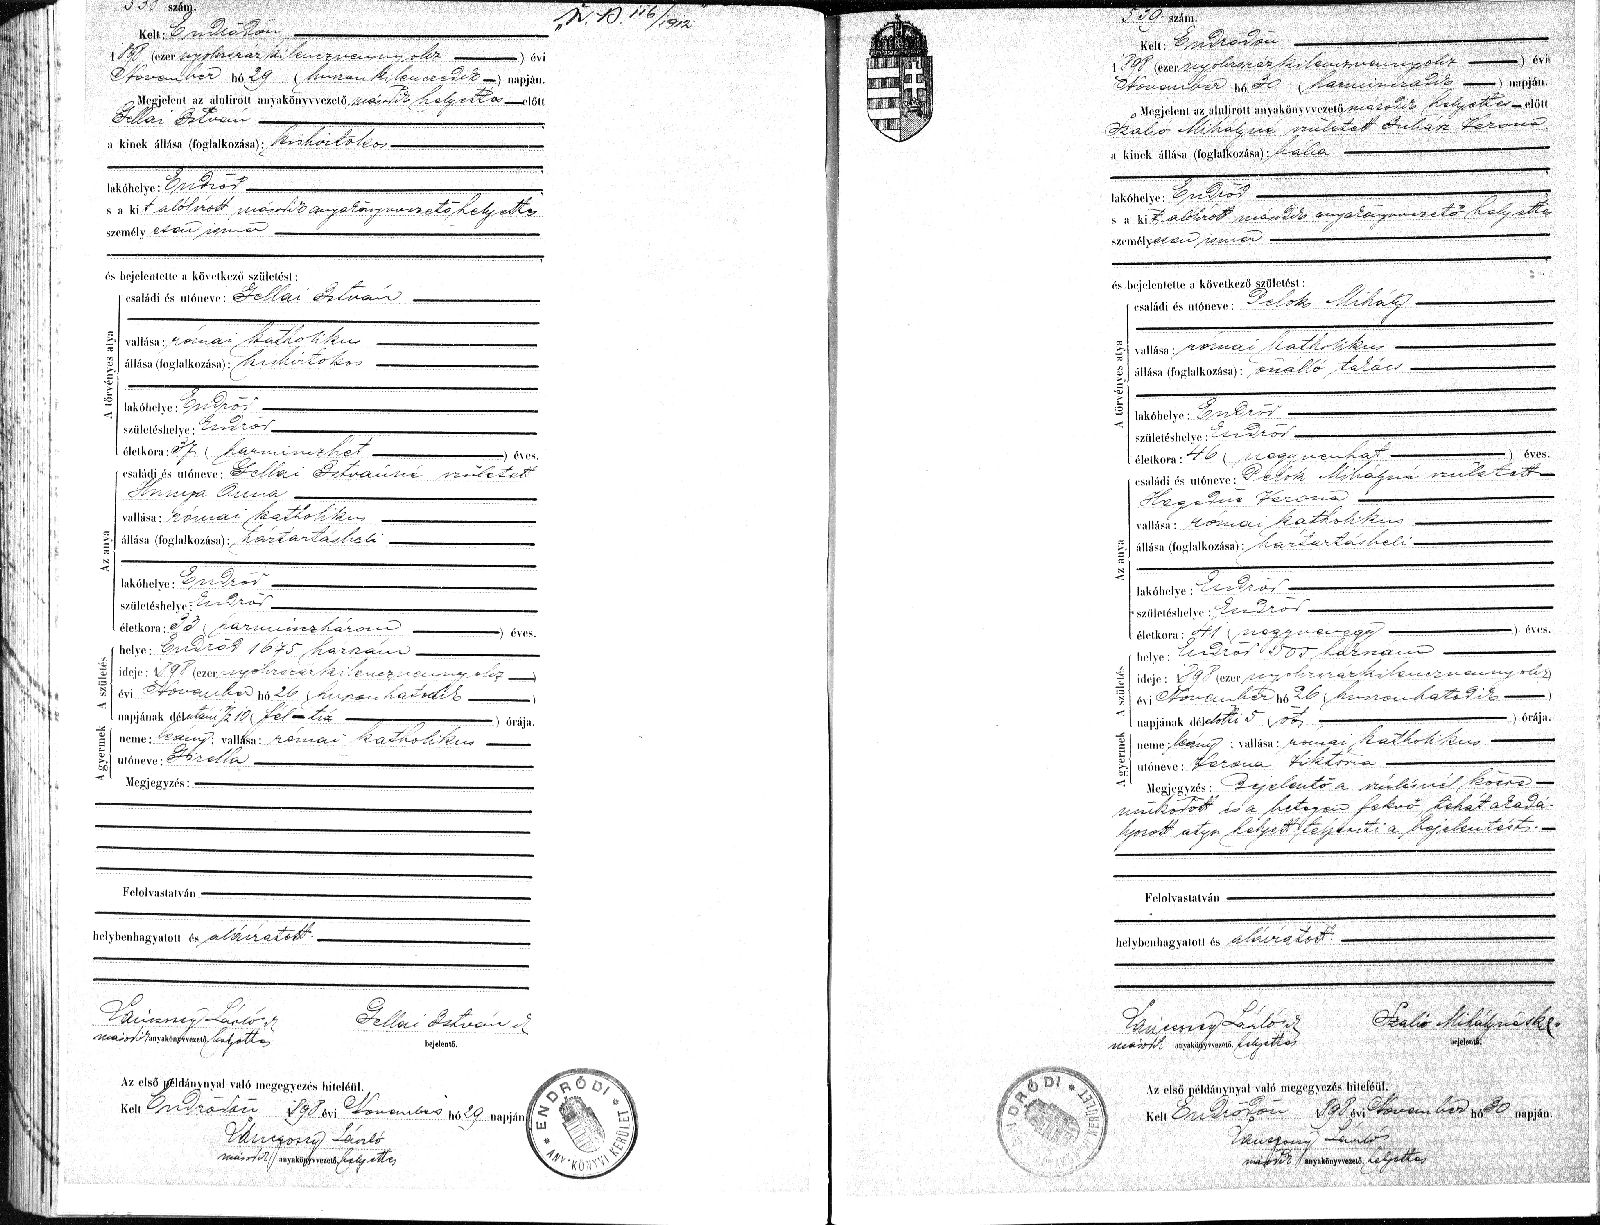 szám.
"N. B. 116/1912"
Kelt: Endrődön
1898 (ezer nyolcszázkilenczvennyolcz) évi
November hó 29 (huszonkilenczedik) napján.
Megjelent az alulirott anyakönyvvezető, második helyettes előtt
Gellai István
a kinek állása (foglalkozása): kisbirtokos
lakóhelye: Endrőd
s a kit alólirott második anyakönyvvezető helyettes
személyesen ismer
és bejelentette a következő születést:
A törvényes atya
családi és utóneve: Gellai István
vallása: római katholikus
állása (foglalkozása): kisbirtokos
lakóhelye: Endrőd
születéshelye: Endrőd
életkora: 37 (harminczhét) éves.
Az anya
családi és utóneve: Gellai Istvánné született
Hunya Anna
vallása: római katholikus
állása (foglalkozása): háztartásbeli
lakóhelye: Endrőd
születéshelye: Endrőd
életkora: 33 (harminczhárom) éves.
A születés
helye: Endrőd 1675 házszám
ideje: 1898 (ezer nyolcszázkilenczvennyolcz)
évi November hó 26 (huszonhatodik)
napjának délutáni 1/2 10 (fél-tíz) órája.
A gyermek
neme: leány; vallása: római katholikus
utóneve:
Megjegyzés:
Felolvastatván
helybenhagyatott és aláiratott.
László
második anyakönyvvezető, helyettes
Gellai István
bejelentő.
Az első példánynyal való megegyezés hiteléül.
Kelt Endrődön 1898 évi November hó 29 napján
László
második anyakönyvvezető, helyettes
* ENDRŐDI * ANYAKÖNYVI KERÜLET
539. szám.
Kelt: Endrődön
1898 (ezer nyolcszázkilenczvennyolcz) évi
November hó 30 (harminczadik) napján.
Megjelent az alulirott anyakönyvvezető második helyettes előtt
Szabó Mihályné született Juhász Verona
a kinek állása (foglalkozása): bába
lakóhelye: Endrőd
s a kit alólirott második anyakönyvvezető helyettes
személyesen ismer
és bejelentette a következő születést:
A törvényes atya
családi és utóneve: Pelok Mihály
vallása: római katholikus
állása (foglalkozása): önálló takács
lakóhelye: Endrőd
születéshelye: Endrőd
életkora: 46 (negyvenhat) éves.
Az anya
családi és utóneve: Pelok Mihályné született
Hegedűs Verona
vallása: római katholikus
állása (foglalkozása): háztartásbeli
lakóhelye: Endrőd
születéshelye: Endrőd
életkora: 41 (negyvenegy) éves.
A születés
helye: Endrőd házszám
ideje: 1898 (ezer nyolcszázkilenczvennyolcz)
évi November hó 26 (huszonhatodik)
napjának délelőtti 5 (öt) órája.
A gyermek
neme: leány; vallása: római katholikus
utóneve: Verona Viktoria
Megjegyzés: Bejelentő a szülésnél közre
működött és a betegen fekvő tehát akadá-
lyozott atya helyett teljesíti a bejelentést.
Felolvastatván
helybenhagyatott és aláiratott.
László
második anyakönyvvezető, helyettes
Szabó Mihályné
bejelentő.
Az első példánynyal való megegyezés hiteléül.
Kelt Endrődön 1898 évi November hó 30 napján.
László
második anyakönyvvezető, helyettes
ENDRŐDI * ANYAKÖNYVI KERÜLET